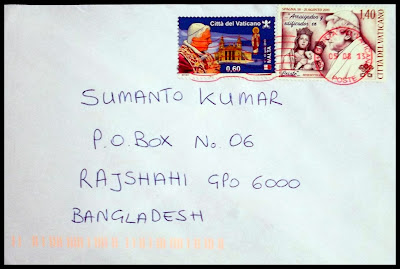 Città del Vaticano
0,60
MALTA
Arraigados y
edificados en
1.40
CITTÀ DEL VATICANO
POSTE
SUMANTO KUMAR
P.O. BOX No. 06
RAJSHAHI GPO 6000
BANGLADESH